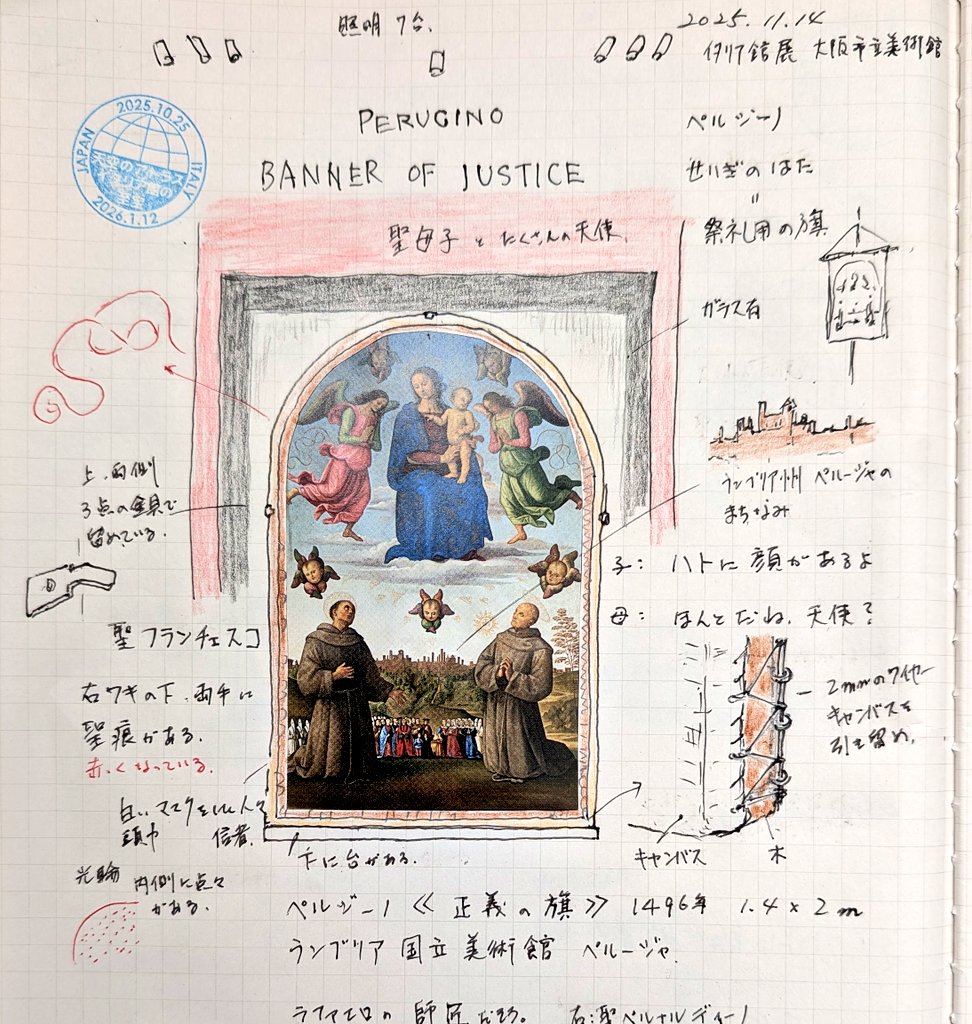 照明 7台.
2025.11.14
イタリア館展 大阪市立美術館
2025.10.25
JAPAN
ITALY
2026.1.12
PERUGINO
ペルジーノ
BANNER OF JUSTICE
せいぎのはた
=
祭礼用の旗
聖母子とたくさんの天使.
ガラス有
上、両側
3点の金具で
留めている.
ランブリア州 ペルージャの
まちなみ
子: ハトに顔があるよ
母: ほんとだね. 天使?
聖フランチェスコ
右ワキの下、両手に
聖痕がある.
赤くなっている.
2mmのワイヤー
キャンバスを
引き留め.
白いマスクをした人々
頭巾 信者.
下に台がある.
キャンバス
木
光輪 内側に点々
がある.
ペルジーノ ≪正義の旗≫ 1496年 1.4×2m
ランブリア国立美術館 ペルージャ.
ラファエロの師匠だそう。 右:聖ベルナルディーノ